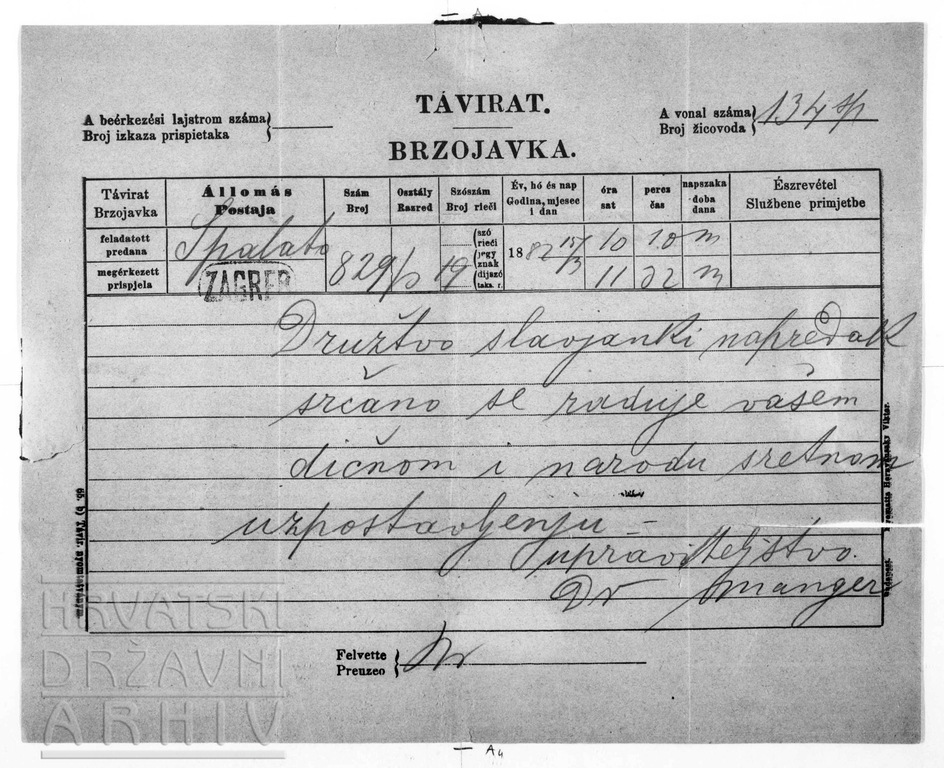 A beérkezési lajstrom száma
Broj izkaza prispietaka
TÁVIRAT.
BRZOJAVKA.
A vonal száma
Broj žicovoda
134 sp
Távirat
Brzojavka
Állomás
Postaja
Szám
Broj
Osztály
Razred
Szószám
Broj rieči
Év, hó és nap
Godina, mjesec
i dan
óra
sat
perez
čas
napszaka
doba
dana
Észrevétel
Službene primjetbe
feladatott
predana
Spalato
szó
rieči
jegy
znak
díjszó
taks. r.
1882 15/3
10
10
m
megérkezett
prispjela
ZAGREB
829
19
11
32
m
Družtvo slavjanki napredak
srčano se raduje vašem
dičnom i narodu sretnom
uzpostavljenju –
upraviteljstvo.
Dr Amanger
Felvette
Preuzeo
HRVATSKI
DRŽAVNI
ARHIV
A4